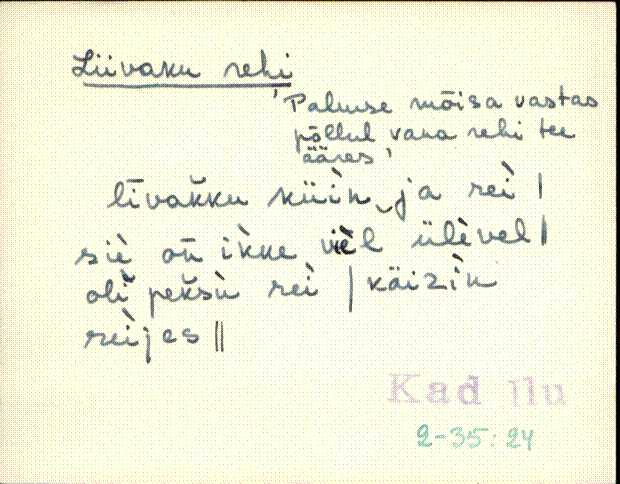 Liivaku rehi
'Palmse mõisa vastas
põllul vana rehi tee
ääres'
līvak̆ku küìn‿ja reì |
siè oǹ ikke vièl ülèvel |
olì pek̆sù reì | käizìn
reìjes ||
Kad
2-35:24